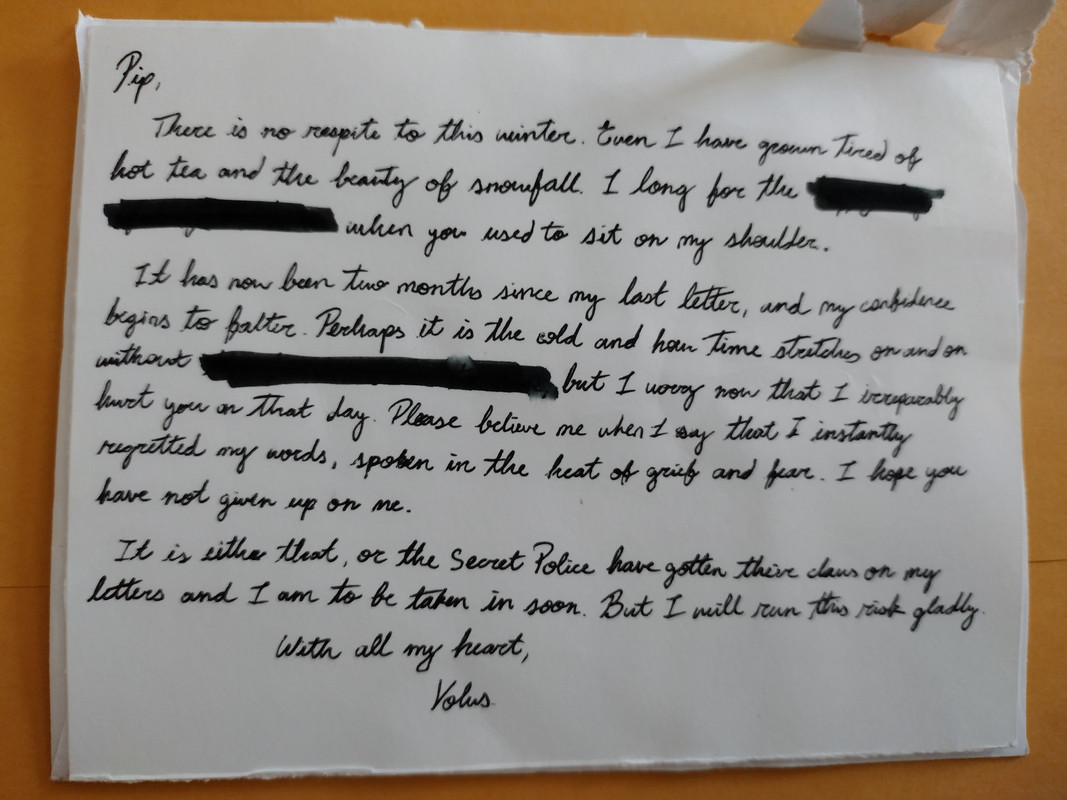 Pip,
There is no respite to this winter. Even I have grown tired of
hot tea and the beauty of snowfall. I long for the
when you used to sit on my shoulder.
It has now been two months since my last letter, and my confidence
begins to falter. Perhaps it is the cold and how time stretches on and on
without but I worry now that I irreparably
hurt you on that day. Please believe me when I say that I instantly
regretted my words, spoken in the heat of grief and fear. I hope you
have not given up on me.
It is either that, or the Secret Police have gotten their claws on my
letters and I am to be taken in soon. But I will run this risk gladly.
With all my heart,
Volus